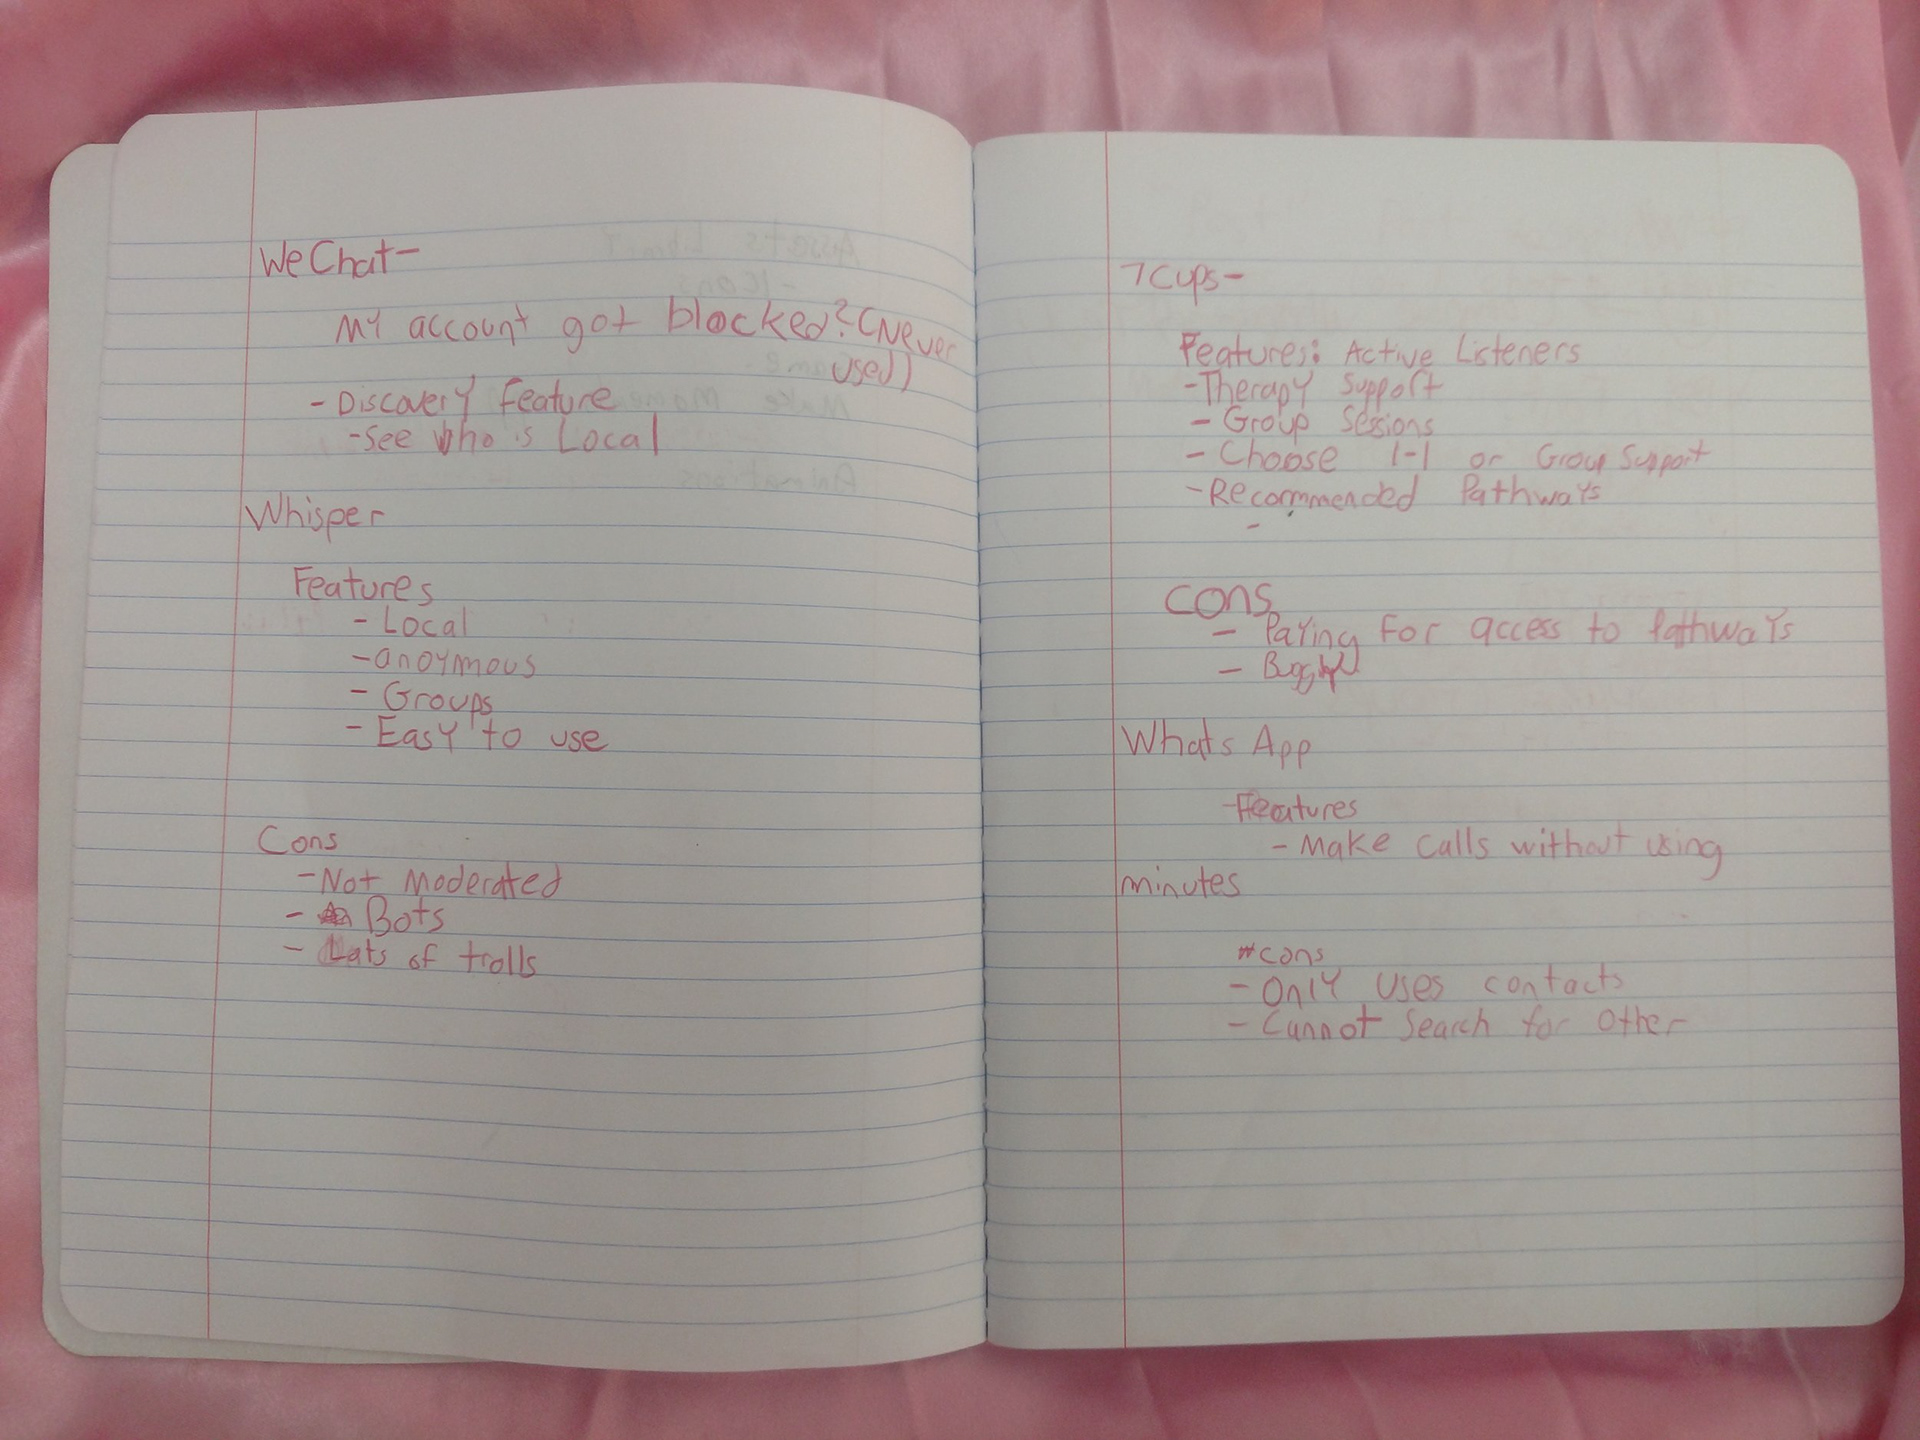 WeChat-
My account got blocked? (Never
used)
- Discovery Feature
-See who is Local
Whisper
Features
- Local
-anoymous
- Groups
- Easy to use
Cons
-Not Moderated
- Bots
- Lots of trolls
7cups-
Features: Active Listeners
-Therapy Support
- Group Sessions
- Choose 1-1 or Group Support
-Recommended Pathways
-
Cons
- Paying For access to Pathways
-
Whats App
-Features
- Make Calls without using
minutes
cons
- Only uses contacts
- Cannot Search for Other